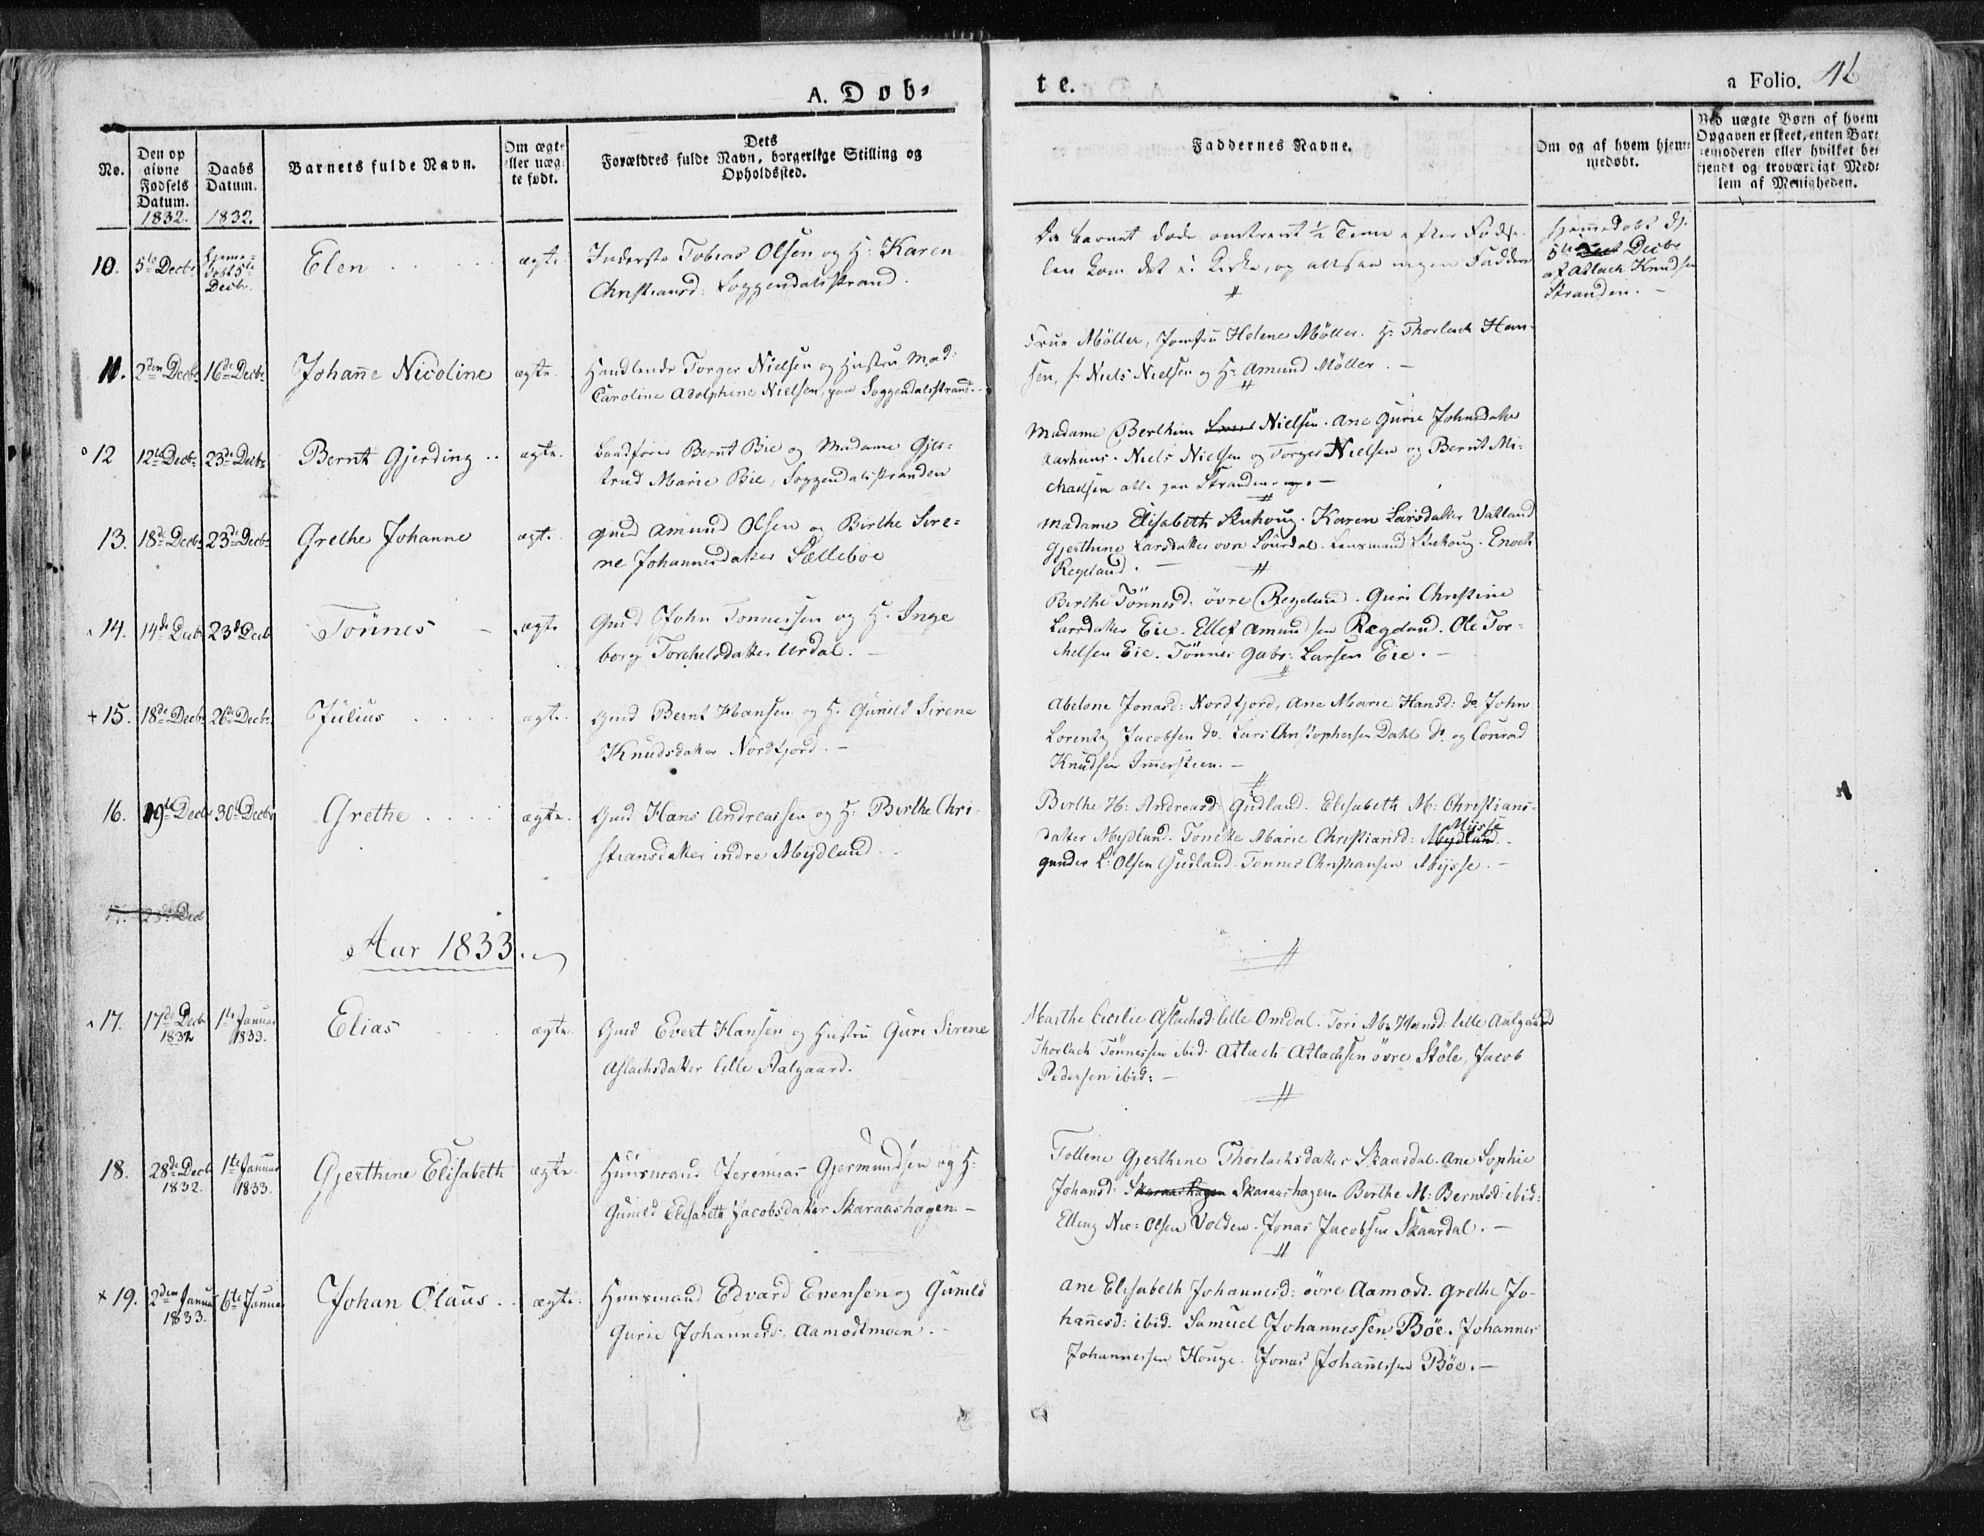 A. Døb-
te.
a Folio. 46
No.
Den op
givne
Fødsels
Datum.
1832.
Daabs
Datum.
1832.
Barnets fulde Navn.
Om ægte
eller uæg-
te født.
Dets
Forældres fulde Navn, borgerlige Stilling og
Opholdssted.
Faddernes Navne.
Om og af hvem hjem-
medøbt.
Ved uægte Børn af hvem
Opgaven er skeet, enten Bar-
nemoderen eller hvilket be-
kjendt og troværdigt Med-
lem af Menigheden.
10. 5te Decbr
Decbr.
Elen
ægte.
Inderste Tobias Olsen og H: Karen
Christiansd: Soggendalsstrand.
Da barnet døde omtrent ½ Time efter Føds-
len kom det ei Kirke, og altsaa ingen Faddere
Hjemmedøbt d.
5te Decbr
af Atlach Knudsen
Stranden. —
11. 2den Decbr 16de Decbr
Johanne Nicoline
ægte.
Handlende Torger Nielsen og Hustru Mad:
Caroline Adolphine Nielsen, paa Soggendalsstrand.
Frue Möller, Jomfru Helene Möller. H: Thorlach Han-
sen, Hr Niels Nielsen og Hr Amund Möller. —
12 12te Decbr 23de Decbr
Bernt Gjerding
ægte.
Bernt Bie og Madame Gjer-
trud Marie Bie, Soggendalsstranden
Madame Berthine Nielsen. Ane Gurie Johnsdatter
Aarhuus. Niels Nielsen og Torger Nielsen og Bernt Mi-
chaelsen alle paa Stranden. —
13. 18de Decbr 23de Decbr
Grethe Johanne
ægte.
Gmd Amund Olsen og Birthe Sire-
ne Johannesdatter Sælleböe
Madame Elisabeth Stuhoug. Karen Larsdatter Vatland
Gjerthine Larsdatter övre Souvdal. Lensmand Stuhoug. Enoch
Regeland. —
14. 14de Decbr 23de Decbr
Tönnes
ægte
Gmd John Tonnessen og H: Inge
borg Torchelsdatter Urdal. —
Berthe Tönnesd: övre Regeland. Guri Christine
Larsdatter Eie. Ellef Amundsen Rægeland. Ole Tor-
chelsen Eie. Tönnes Gabr: Larsen Eie. —
+ 15. 18de Decbr 26de Decbr
Julius
ægte.
Gmd Bernt Hansen og H. Gunild Sirene
Knudsdatter Nordfjord. —
Abelone Jonasd: Nordfjord, Ane Marie Hansd: do John
Lorentz Jacobsen do. Lars Christophersen Dahl do og Conrad
Knudsen Immersteen. —
16. 19de Decbr 30te Decbr
Grethe
ægte.
Gmd Hans Andreassen og H: Birthe Chri-
stiansdatter indre Mydland.
Birthe H: Andreasd: Gudland. Elisabeth M: Christians-
datter Mydland. Tonette Marie Christiansd: Mydland Mysse
Gunder L: Olsen Gudland. Tonnes Christiansen Mysse. —
17. 23de Dec
Aar 1833.
17. 17de Decb 1832 1te Januar 1833.
Elias
ægte.
Gmd Evert Hansen og Hustru Guri Sirene
Aslachsdatter lille Aalgaard.
Marthe Cecilie Aslachsd: lille Omdal. Tori M. Hansd: lille Aalgaard
Thorlach Tönnessen ibid. Atlach Atlachsen övre Stöle, Jacob
Pedersen ibid: —
18. 28de Decb 1832. 1te Januar 1833.
Gjerthine Elisabeth
ægte.
Huusmand Jeremias Gjermundsen og H:
Gunild Elisabeth Jacobsdatter Skaraashagen. —
Tollene Gjerthine Thorlachsdatter Skaardal. Ane Sophie
Johansd: Skaraashagen Skaraashagen. Birthe M: Berntsd: ibid:
Elling Nic: Olsen Volden. Jonas Jacobsen Skaardal. —
× 19. 2den Januar 1833. 6te Januar
Johan Olaus
ægte.
Huusmand Edvard Evensen og Gunild
Gurie Johannesd: Aamodtmoen. —
Ane Elisabeth Johannesd: övre Aamodt. Grethe Jo-
hannesd: ibid. Samuel Johannessen Böe. Johannes
Johannessen Houge. Jonas Johannessen Böe. —